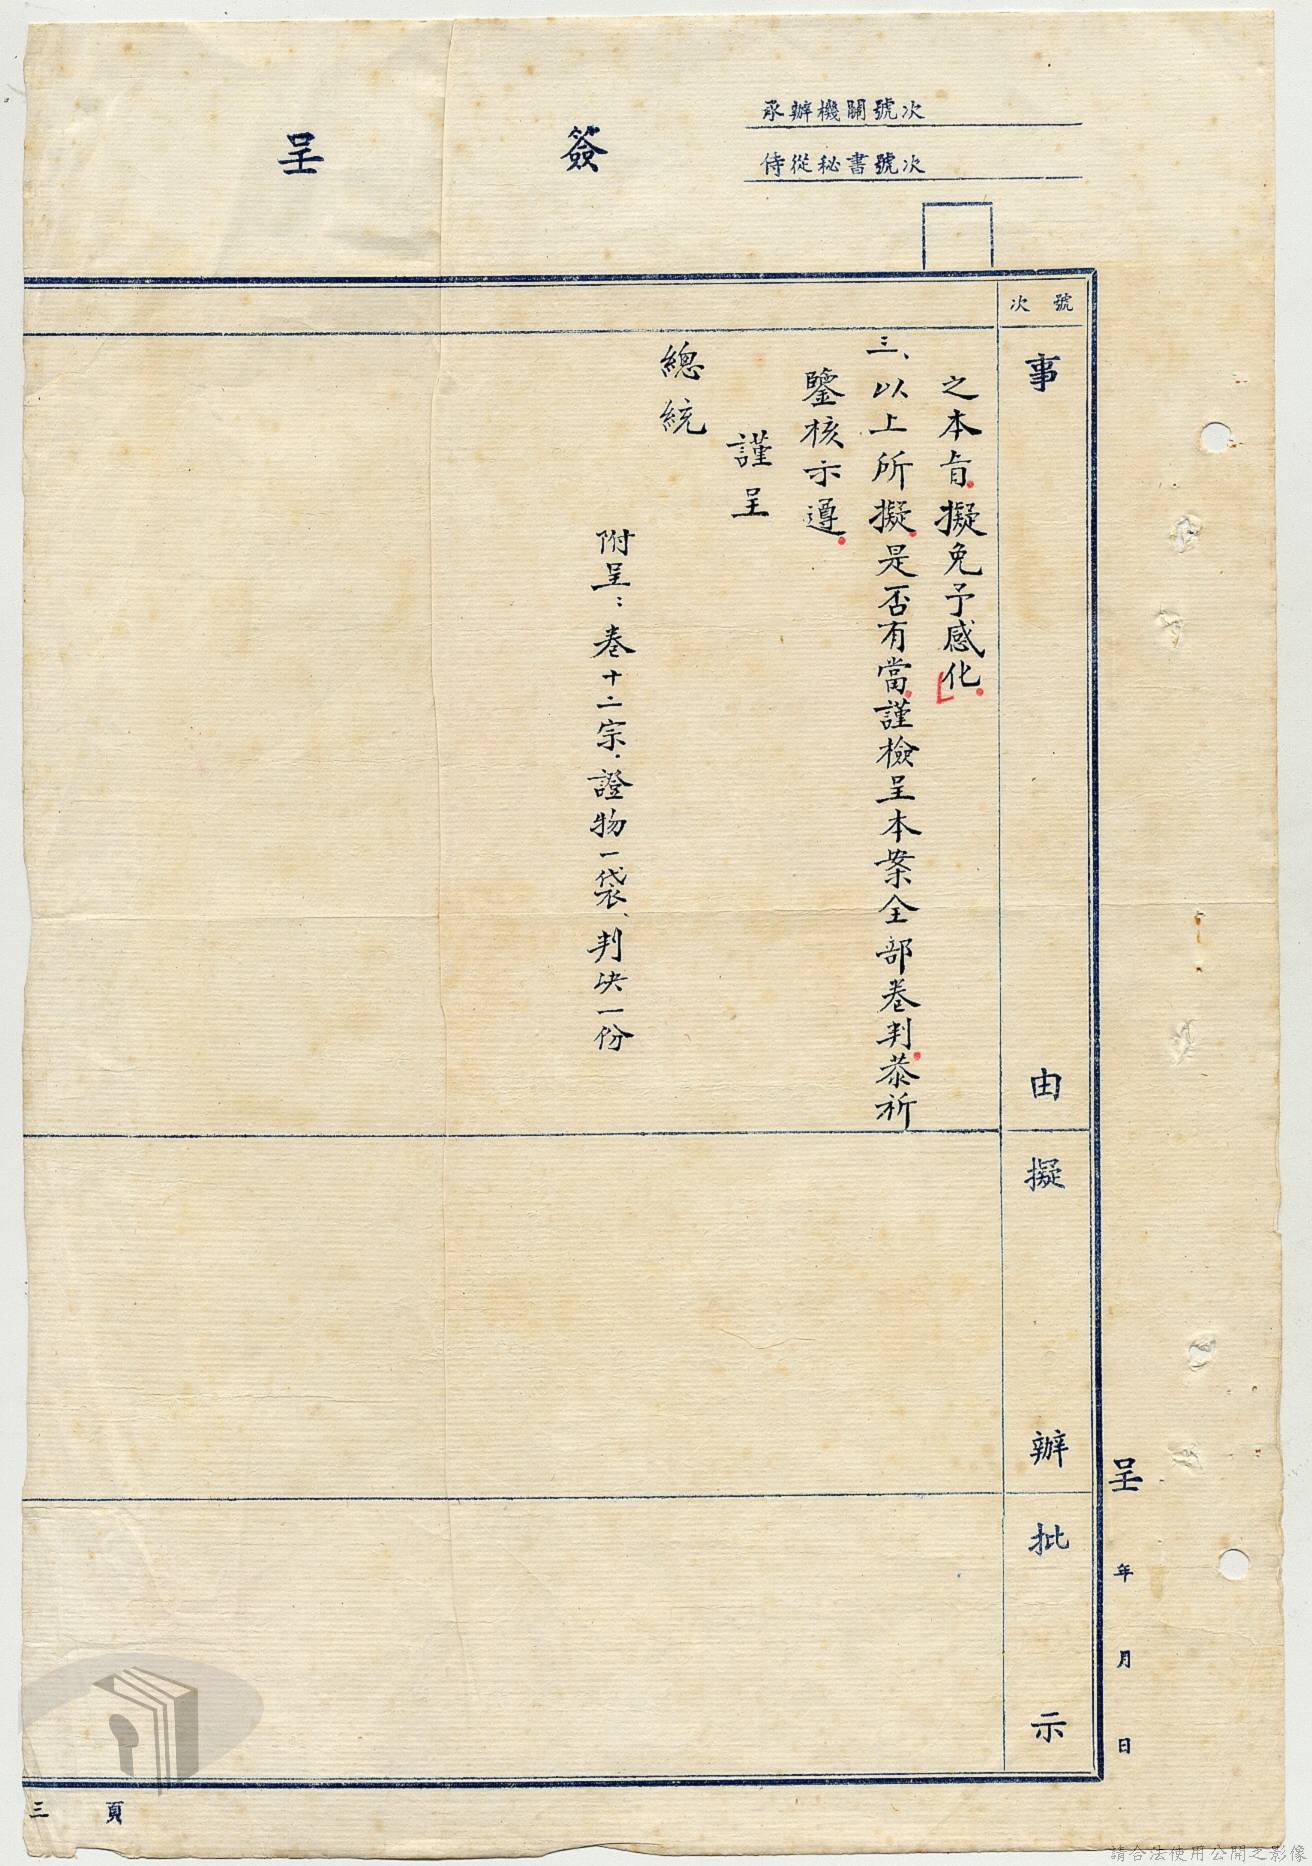 簽呈
承辦機關號次
侍從秘書號次
號次
事由
擬辦
批示
呈 年 月 日
之本旨擬免予感化
三、以上所擬是否有當謹檢呈本案全部卷判恭祈
鑒核示遵
謹呈
總統
附呈：卷十二宗、證物一袋、判決一份
頁三
請合法使用公開之影像